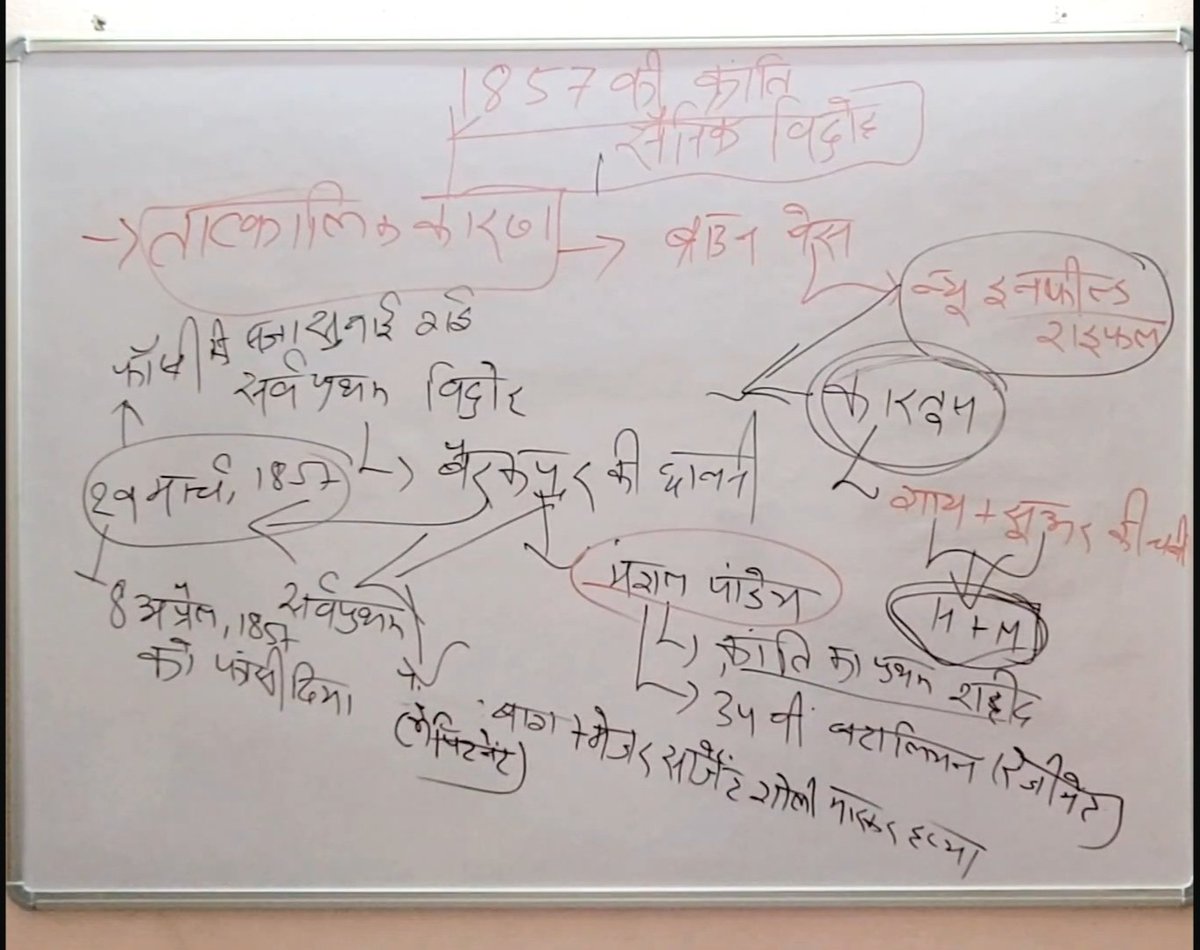 1857 की क्रांति
सैनिक विद्रोह
तात्कालिक कारण
ब्राउन बेस
न्यू इनफील्ड
राइफल
कारतूस
गाय + सूअर की चर्बी
H + M
फाँसी की सजा सुनाई गई
सर्वप्रथम विद्रोह
बैरकपुर की छावनी
29 मार्च, 1857
8 अप्रैल, 1857
को फांसी दिया
सर्वप्रथम
मंगल पांडेय
क्रांति का प्रथम शहीद
34 वीं बटालियन (रेजीमेंट)
ले. बाग + मेजर सार्जेंट गोली मारकर हत्या
(लेफ्टिनेंट)